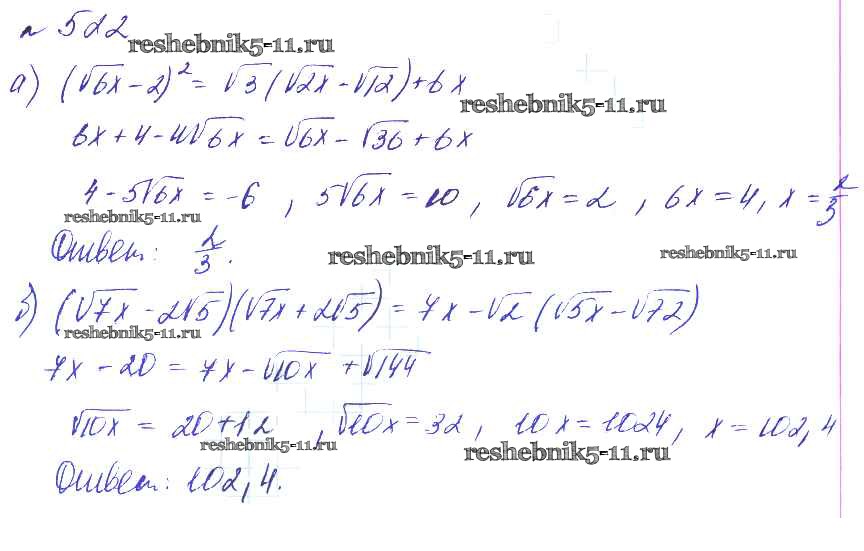 № 522
reshebnik5-11.ru
а) (√6x - 2)² = √3 (√2x - √12) + 6x
reshebnik5-11.ru
6x + 4 - 4√6x = √6x - √36 + 6x
4 - 5√6x = -6 , 5√6x = 10 , √6x = 2 , 6x = 4, x = 2/3
reshebnik5-11.ru
Ответ: 2/3.
reshebnik5-11.ru
reshebnik5-11.ru
б) (√7x - 2√5)(√7x + 2√5) = 7x - √2 (√5x - √72)
reshebnik5-11.ru
7x - 20 = 7x - √10x + √144
√10x = 20 + 12 , √10x = 32 , 10x = 1024 , x = 102,4
reshebnik5-11.ru
reshebnik5-11.ru
Ответ: 102,4.